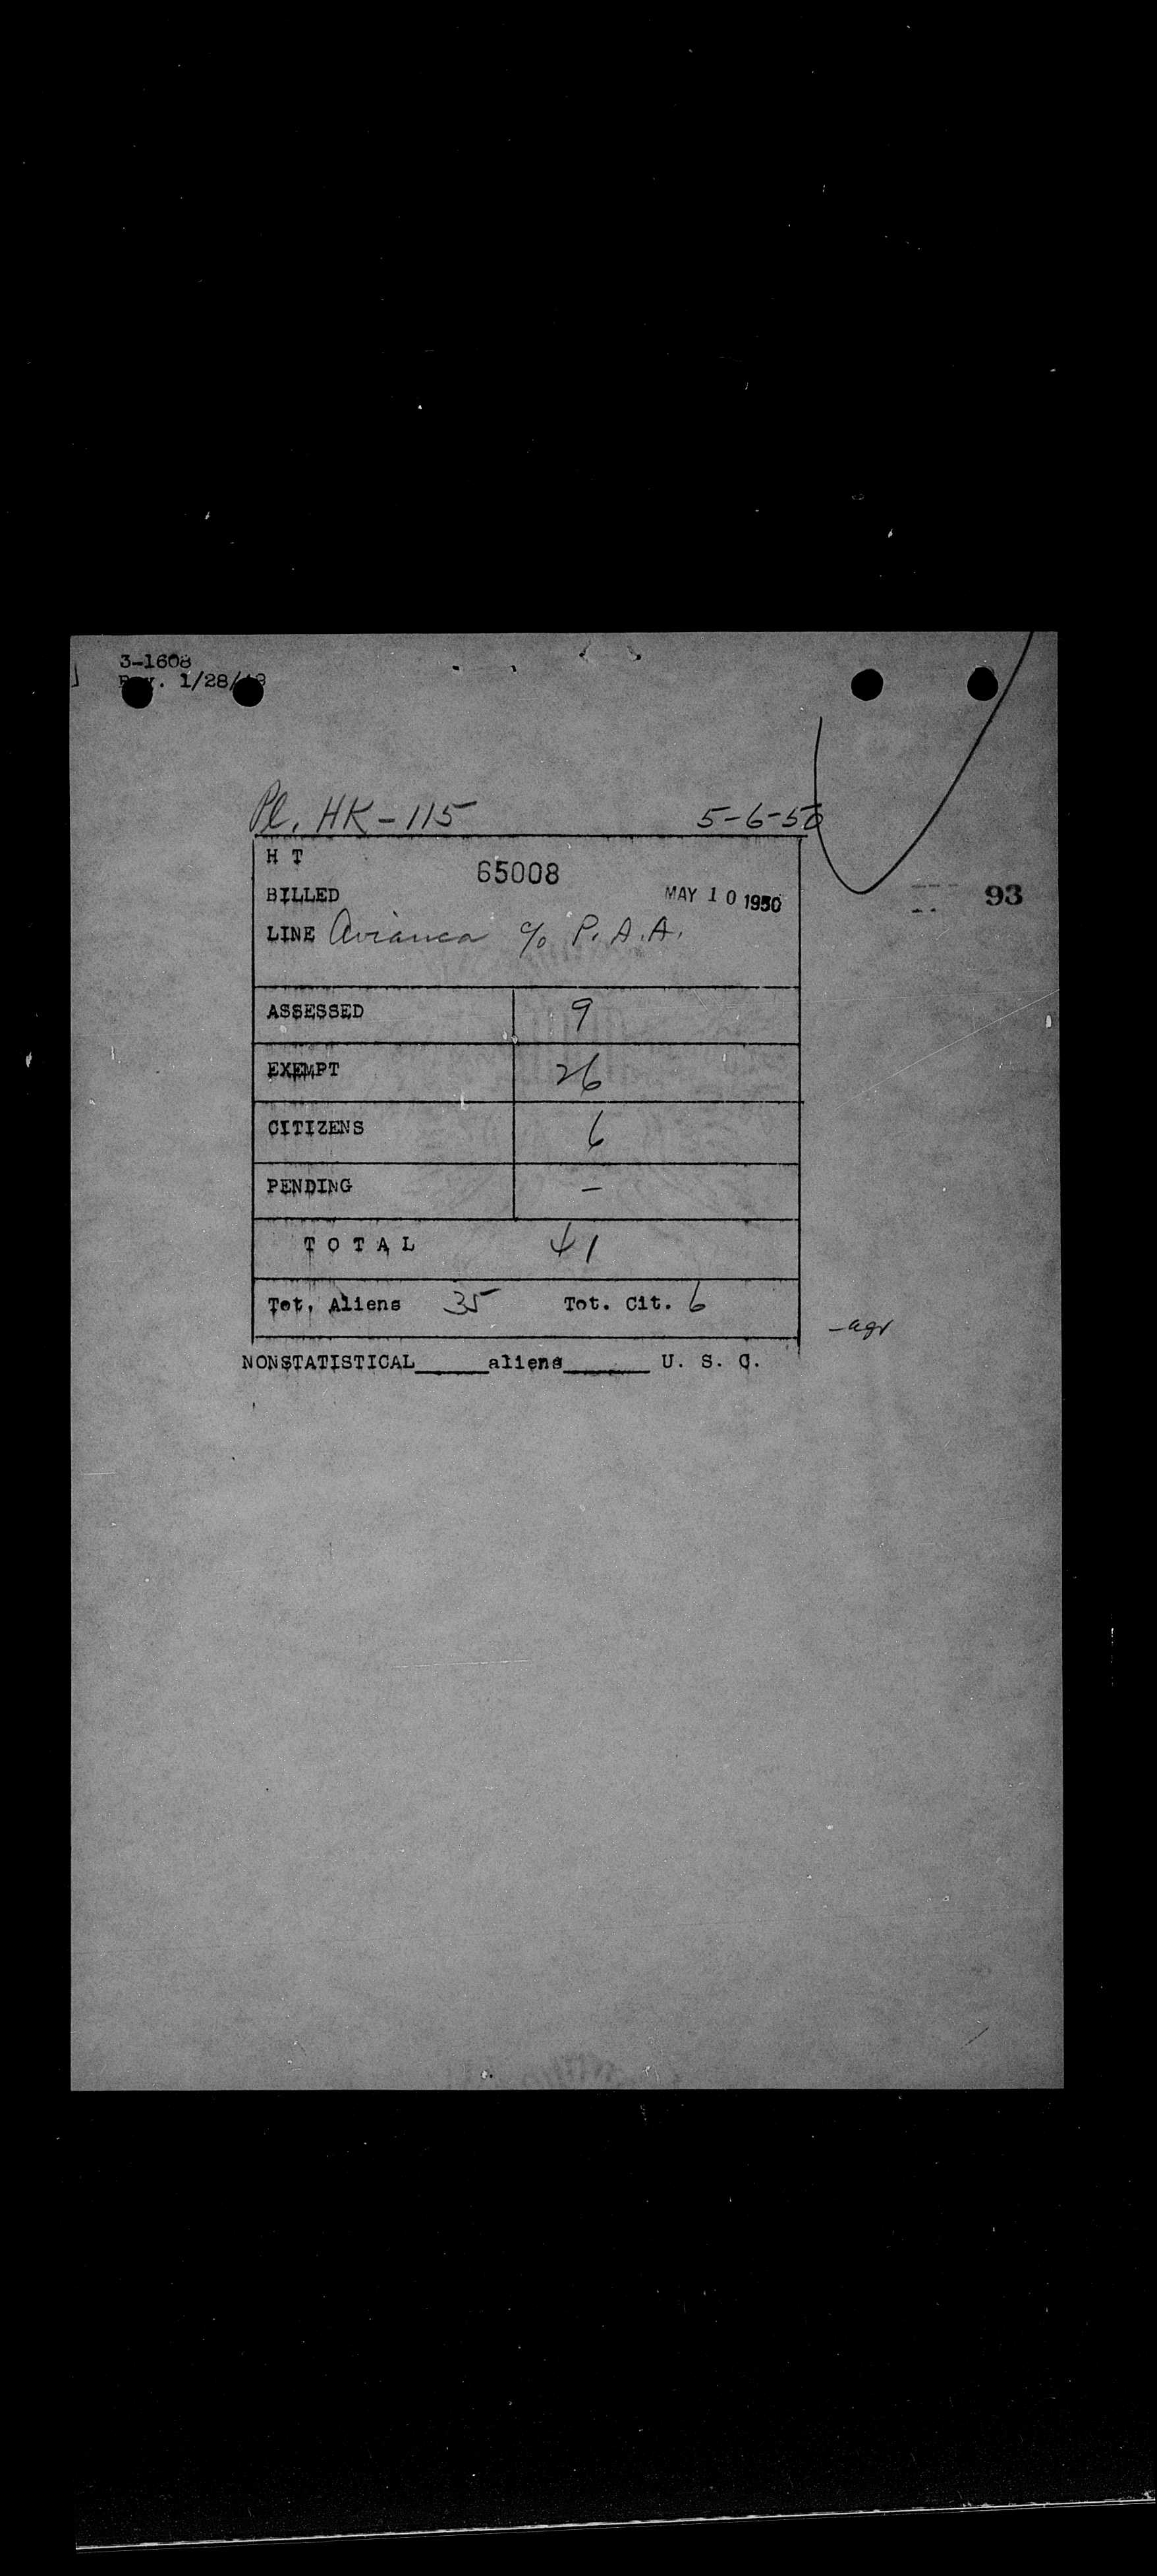 3-1608
Rev. 1/28/49
Pl. HK-115 5-6-50
H T 65008
BILLED MAY 10 1950
93
LINE Avianca c/o P.A.A.
ASSESSED 9
EXEMPT 26
CITIZENS 6
PENDING –
T O T A L 41
Tot. Aliens 35 Tot. Cit. 6
NONSTATISTICAL______aliens_______ U. S. C.